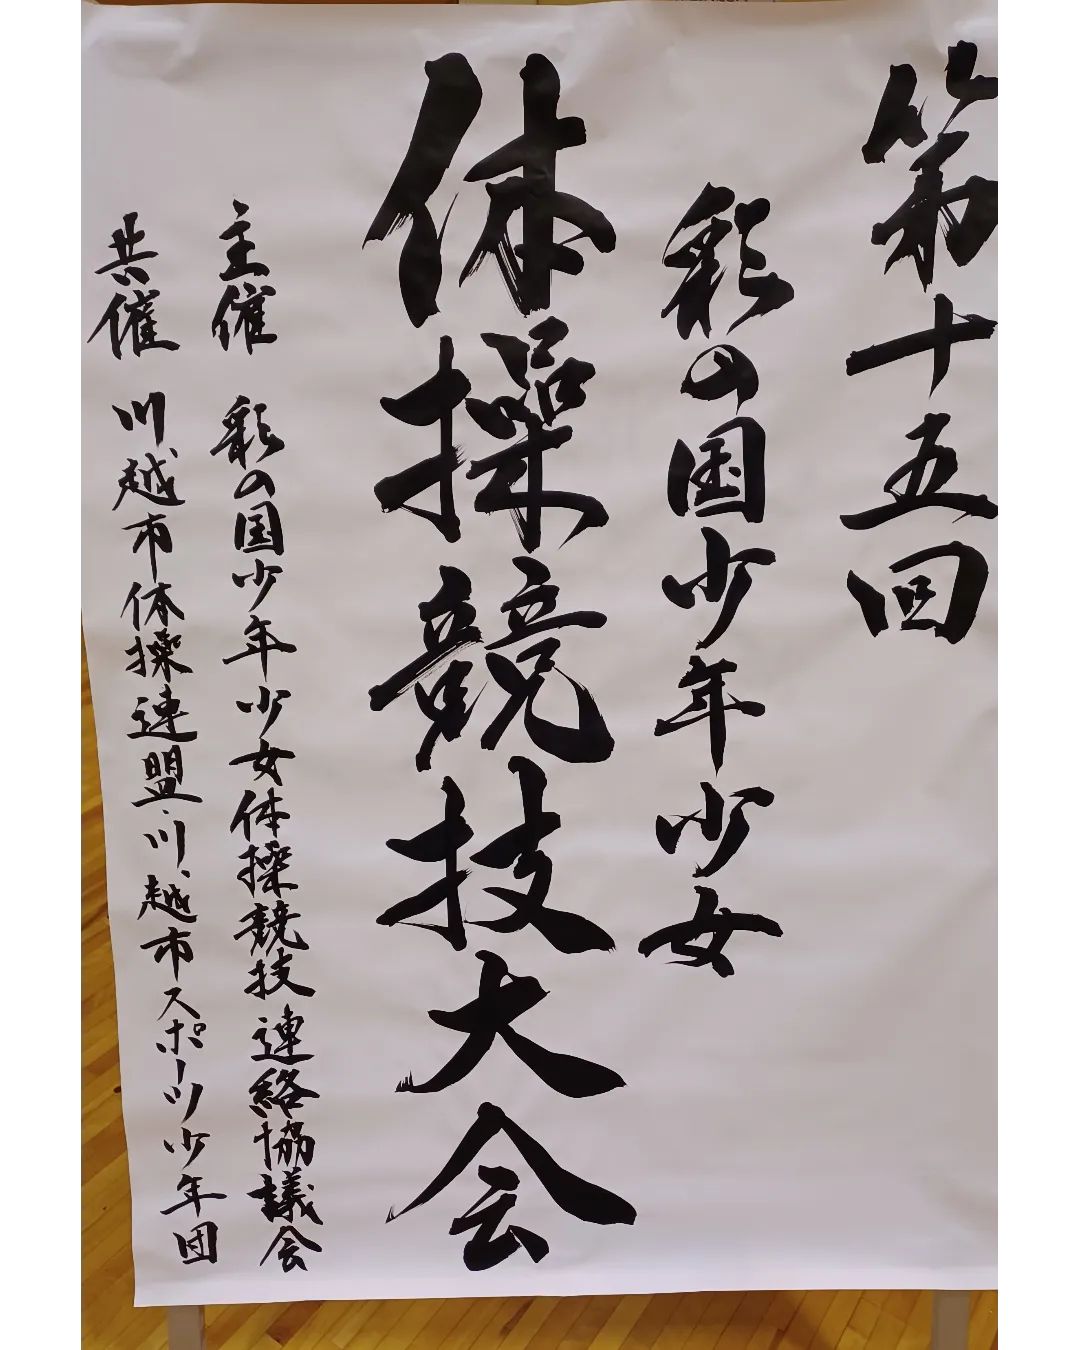 第十五回
彩の国少年少女
体操競技大会
主催 彩の国少年少女体操競技連絡協議会
共催 川越市体操連盟・川越市スポーツ少年団